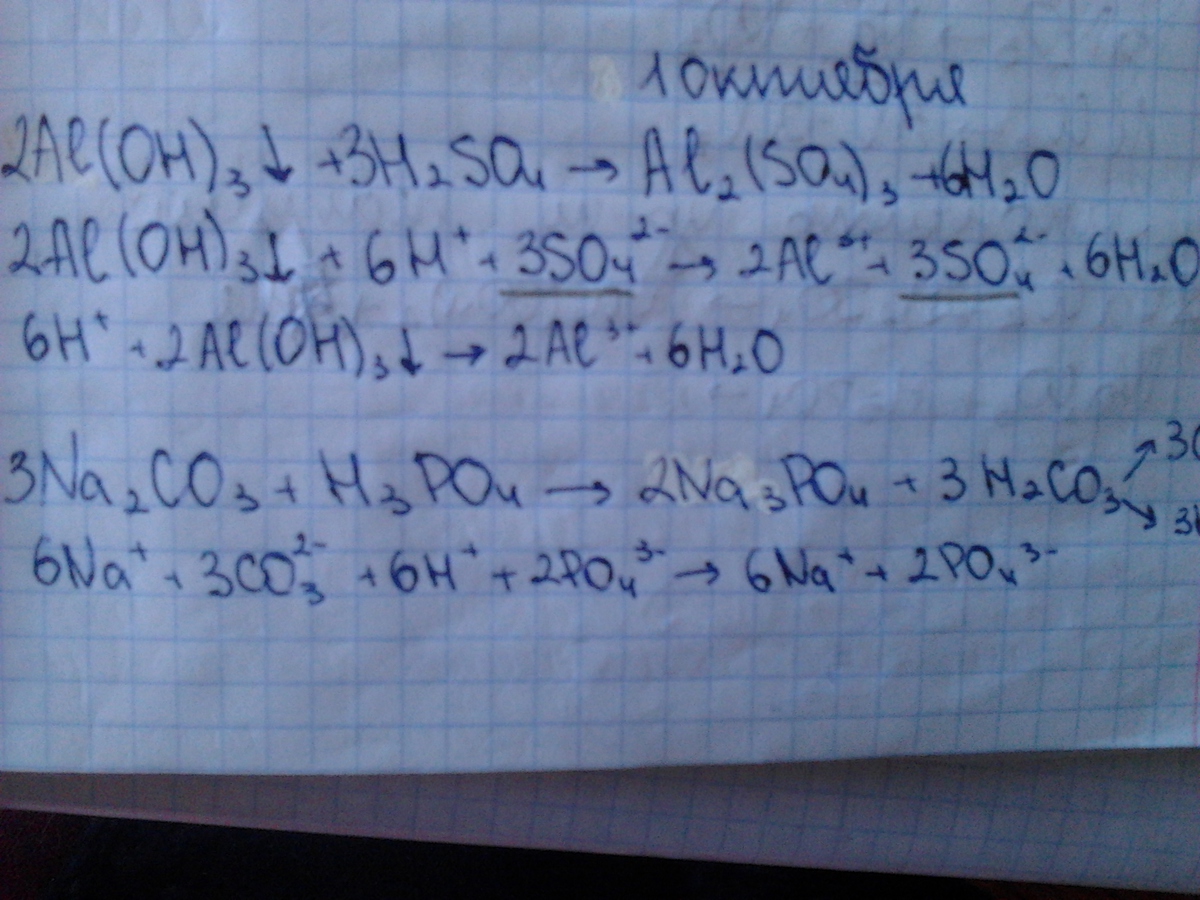 1 октября
2Al(OH)₃↓ +3H₂SO₄ → Al₂(SO₄)₃ +6H₂O
2Al(OH)₃↓ + 6H⁺ + 3SO₄²⁻ → 2Al³⁺ + 3SO₄²⁻ + 6H₂O
6H⁺ + 2Al(OH)₃↓ → 2Al³⁺ + 6H₂O
3Na₂CO₃ + H₃PO₄ → 2Na₃PO₄ + 3H₂CO₃
6Na⁺ + 3CO₃²⁻ + 6H⁺ + 2PO₄³⁻ → 6Na⁺ + 2PO₄³⁻